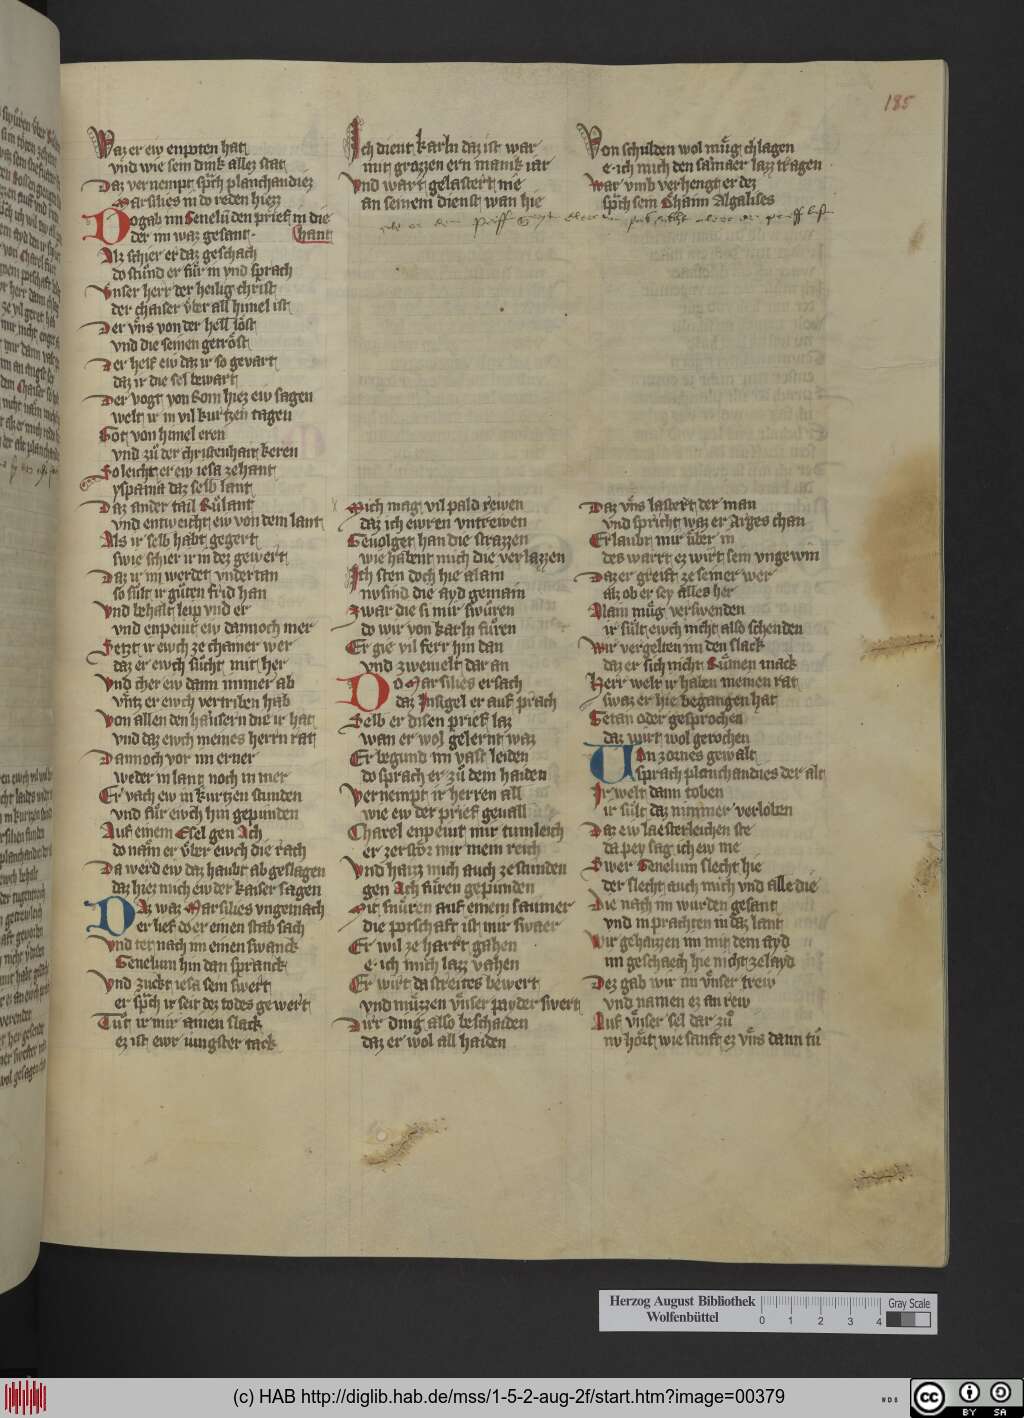 185
Waz er ew enpoten hat
vnd wie sein dink allez stat
Daz vernempt sp̄ch planchandiez
Marsilies in do reden hiezz
Do gab im Genelū den prief in die hant
der im waz gesant
Alz schier er daz geschach
do stůnd er fůr in vnd sprach
Vnser herr der heilig christ
der chaiser v̈ber all himel ist
Der v̈ns von der hell lost
vnd die seinen getrost
Der helf ew daz ir so gevart
daz ir die sel bewart
Der vogt von Rom hiez ew sagen
welt ir in vil kurtzen tagen
Got von himel eren
vnd zů der christenhait keren
So leicht er ew iesa zehant
yspania daz selb lant
Daz ander tail Růlant
vnd entweicht ew von dem lant
Als ir selb habt gegert
swie schier ir in dez gewert
Daz ir im werdet vndertan
so sült ir gůten frid han
Vnd behalt leig vnd er
vnd enpeut ew dannoch mer
Setzt ir ewch ze chainer wer
daz er ewch sůcht mit her
Vnd cher ew dann nimmer ab
v̈ntz er ewch vertriben hab
Von allen den hausern die ir hat
vnd daz ewch meines herrn rat
Dannoch vor im erner
weder in lant noch in mer
Er vach ew in kurtzen stunden
vnd für ewch hin gepunden
Auf einem Esel gen Ach
do nām er v̈ber ewch die rach
Da werd ew daz haubt ab geslagen
daz hiez mich ew der kaiser sagen
Daz waz Marsilies vngemach
er lief do er einen stab sach
Vnd tet nach im einen swanck
Genelun hin dan spranck
Vnd zuckt iesa sein swert
er sp̄ch ir seit dez todes gewert
Tůt ir mir ainen slack
ez ist ewr iungster tack
Ich dient karln daz ist war
mit grozzen ern manik iar
Vnd wart gelastert nie
an seinem dienst wan hie
Mich mag vil pald rewen
daz ich ewren vntrewen
Geuolget han die strazzen
wie habent mich die verlazzen
Ich sten doch hie alain
nu sind die ayd gemain
Zwar die si mir swůren
do wir von karln fůren
Er gie vil ferr hin dan
vnd zweinelt dar an
Do Marsilies ersach
daz Insigel er auf prach
Selb er disen prief laz
wan er wol gelernt waz
Er begund im vast leiden
do sprach er zů dem haiden
Vernempt ir herren all
wie ew der prief geuall
Charel enpeut mir tumleich
er zerstör mir mein reich
Vnd haizz mich auch ze stunden
gen Ach fůren gepunden
Mit snůren auf einem saumer
die potschaft ist mir swaer
Er wil ze hartt gahen
e ich mich lazz vahen
Er wirt da streites bewert
vnd můzzen v̈nser payder swert
Dirr ding also beschaiden
daz er wol all haiden
Von schulden wol můg chlagen
e ich mich den sainaer lazz tragen
War vmb verhengt er dez
sp̄ch sein Ohaim Algalises
Daz v̈ns lastert der man
vnd spricht waz er Arges chan
Erlaubt mir über in
des wartt ez wirt sein vngewin
Daz er greift ze seiner wer
alz ob er sey alles her
Alain můg verswenden
ir sült ewch nicht also schenden
Wir vergelten im den slack
daz er sich nicht Růmen mack
Herr welt ir haben meinen rat
swaz er hie begangen hat
Getan oder gesprochen
daz wirt wol gerochen
Von zornes gewalt
sprach planchandies der alt
Ir welt dann toben
ir sült daz nimmer verloben
Daz ew laesterleichen ste
da pey sag ich ew me
Swer Genelum slecht hie
der slecht auch mich vnd alle die
Die nach im wurden gesant
vnd in prachten in daz lant
Wir gehaizzen im mit dem ayd
im geschaech hie nicht ze layd
Dez gab wir im v̈nser trew
vnd namen ez an rew
Auf v̈nser sel dar zů
nv hört wie sanft ez v̈ns dann tů
Herzog August Bibliothek
Wolfenbüttel
0 1 2 3 4
Gray Scale
(c) HAB http://diglib.hab.de/mss/1-5-2-aug-2f/start.htm?image=00379
WDB
cc BY SA